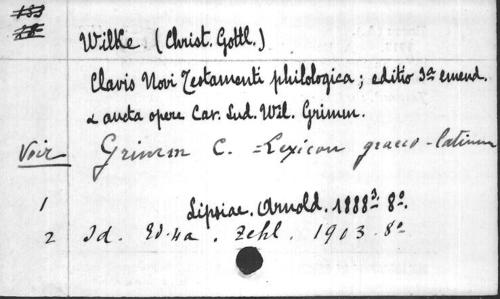 Wilke. (Christ. Gottl.)
Clavis Novi Testamenti philologica; editio 3ª emend.
& aucta opere Car. Lud. Wil. Grimm.
Voir Grimm C. = Lexicon graeco-latinum
1 Lipsiae. Arnold. 1888³. 8º.
2 Id. Ed. 4a. Zehl. 1903. 8º